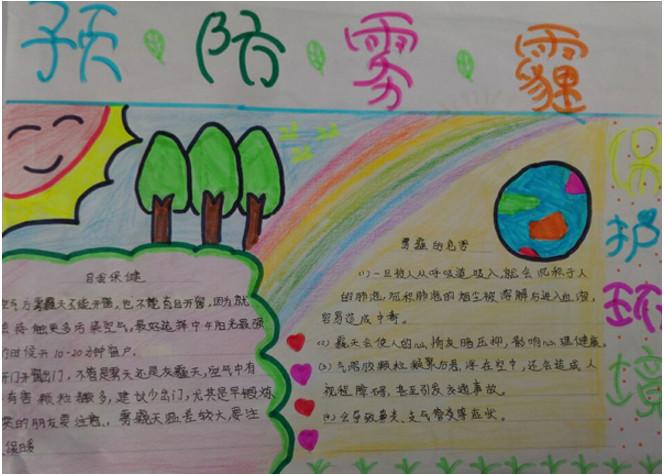 预防雾霾
保护环境
自我保健
空气与雾霾天不能开窗,也不能盲目开窗,因为就
会接触更多污染空气,最好选择中午阳光最强
的时候开10-20分钟窗户。
开门开窗出门,不管是雾天还是灰霾天,空气中有
有害颗粒都多,建议少出门,尤其是早锻炼
的朋友要注意,雾霾天温差较大要注
保暖
雾霾的危害
(1)一旦被人从呼吸道吸入,就会沉积于人
的肺泡,沉积肺泡的烟尘被溶解后进入血液,
容易造成中毒。
(2)霾天会使人的心情灰暗压抑,影响心理健康。
(3)气溶胶颗粒凝聚后浮在空中,还会造成人
视程障碍,甚至引发交通事故。
(4)会导致鼻炎、支气管炎等症状。